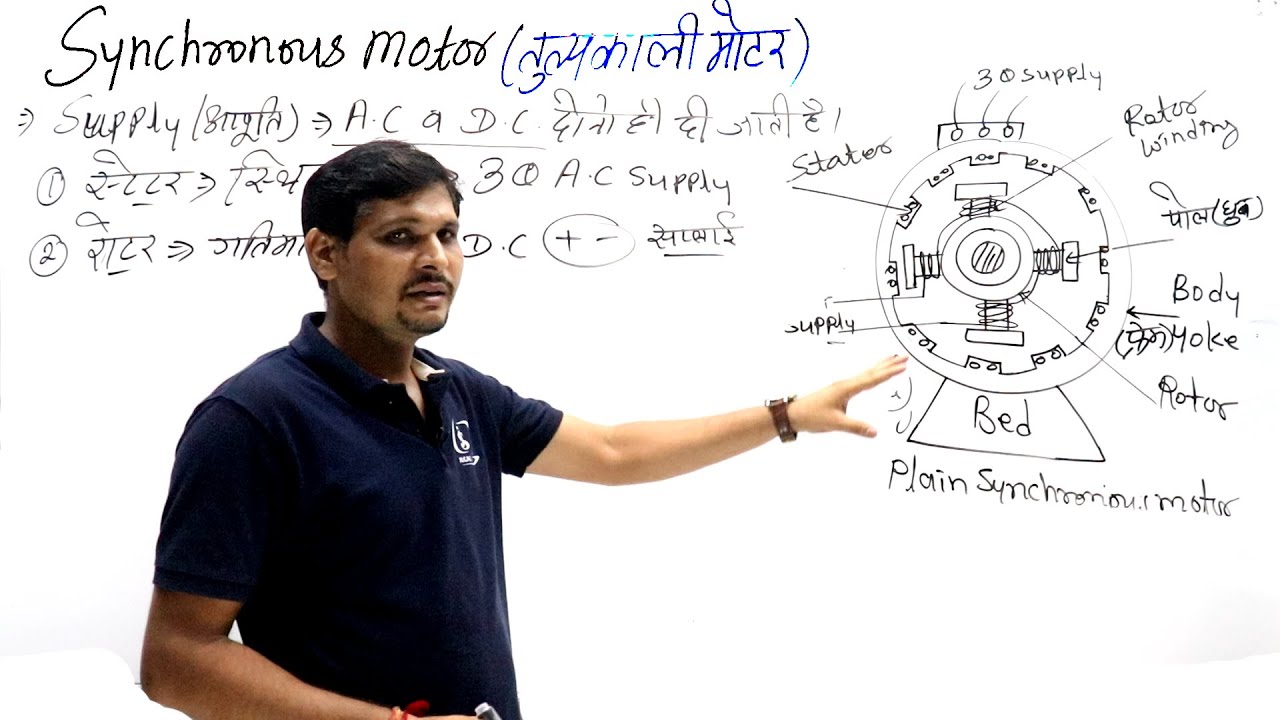 Synchronous motor (तुल्यकाली मोटर)
⇒ Supply (आपूर्ति) ⇒ A.C व D.C. दोनो ही दी जाती है।
① स्टेटर ⇒ 3Ø A.C supply
② रोटर ⇒ D.C (+ -) सप्लाई
3Ø supply
Rotor winding
Stater
पोल (ध्रुव)
Body
(फ्रेम) Yoke
supply
Rotor
Bed
Plain Synchronious motor